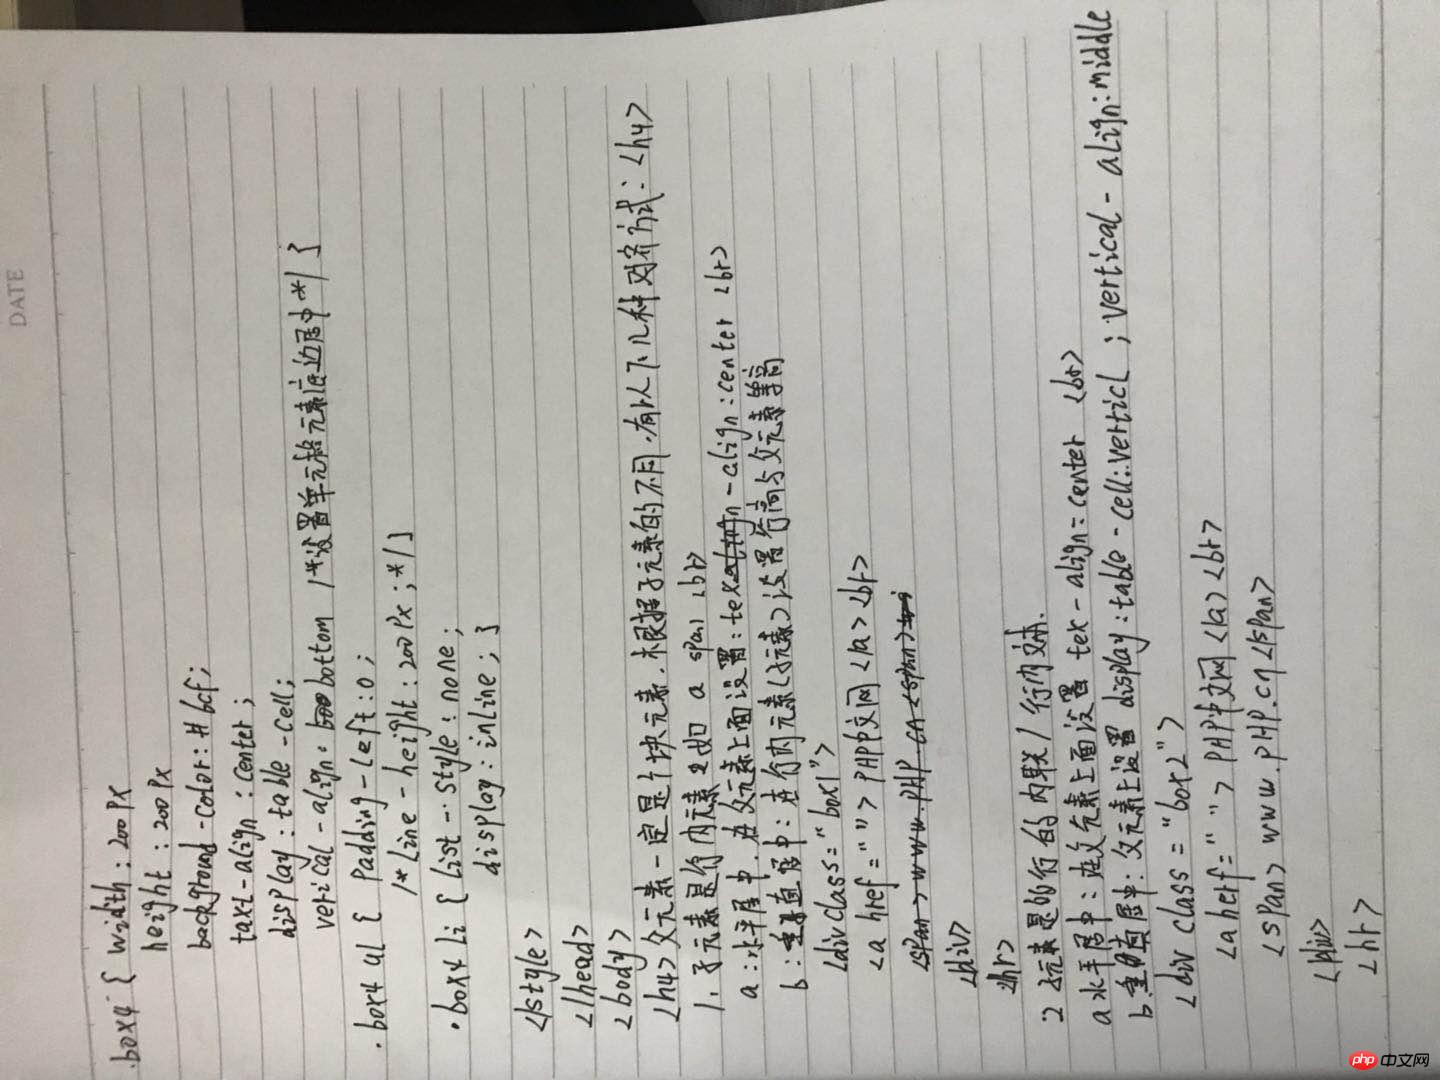 DATE
.box4 { width : 200px
height : 200px
background-color : # bcf ;
taxt-align : center ;
display : table-cell ;
vertical-align : bottom /*设置单元格元素底边居中*/ }
.box4 ul { padding-left : 0 ;
/* line-height : 200px ; */ }
.box4 li { list-style : none ;
display : inline ; }
</style>
</head>
<body>
<h4> 父元素一定是个块元素,根据子元素的不同,有以下几种对齐方式: <h4>
1. 子元素是行内元素 如 a span <br>
a : 水平居中,在父元素上面设置 : tex-align : center <br>
b : 垂直居中 : 在行内元素(子元素)设置行高与父元素等高
<div class="box1">
<a href=""> PHP中文网 </a> <br>
<span> www.PHP CA <span>
<div>
<hr>
2 元素是的行的内联/行内文本.
a 水平居中 : 在父元素上面设置 tex-align = center <br>
b. 垂直居中 : 父元素上设置 display : table-cell : verticl ; vertical-align : middle
<div class = "box2">
<a herf=""> PHP中文网 </a> <br>
<span> www.PHP.cn <span>
<div>
<hr>
php 中文网